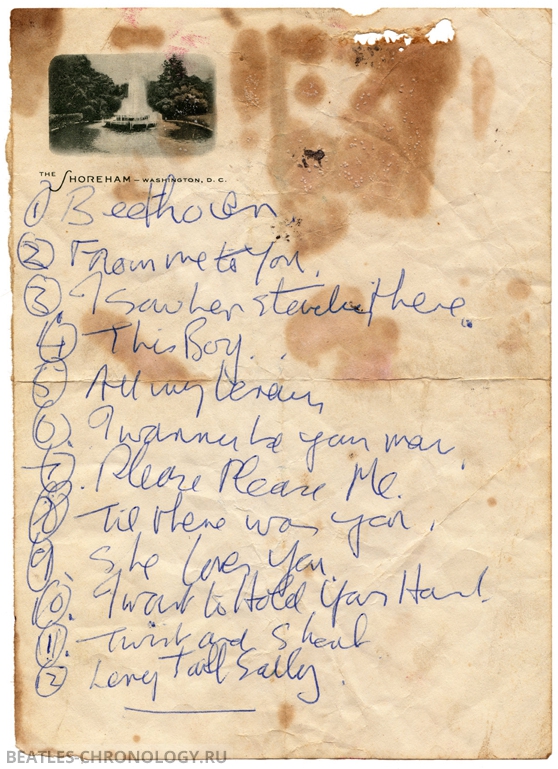 THE SHOREHAM – WASHINGTON, D. C.
① Beethoven
② From me to You.
③. I Saw her standing there.
④ This Boy.
⑤ All my Loving
⑥. I wanna be your man.
⑦. Please Please Me.
⑧ Till there was you.
⑨. She loves You.
⑩. I want to Hold Your Hand.
⑪. Twist and Shout
⑫ Long Tall Sally.
BEATLES-CHRONOLOGY.RU